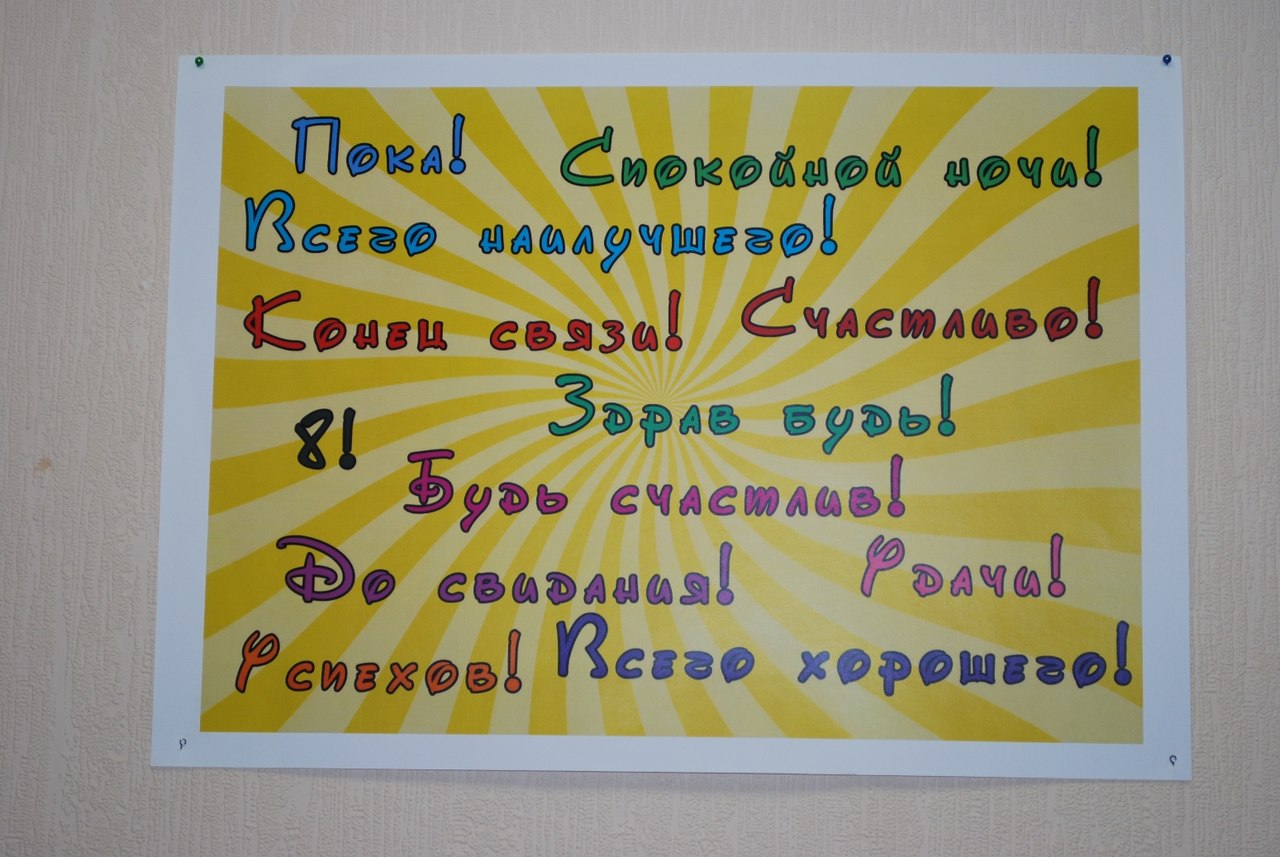 Пока! Спокойной ночи!
Всего наилучшего!
Конец связи! Счастливо!
Здрав будь!
8!
Будь счастлив!
До свидания! Удачи!
Успехов! Всего хорошего!